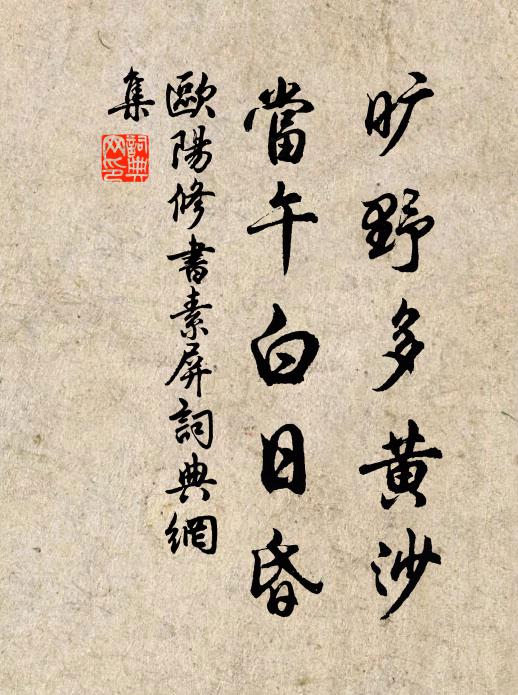 旷野多黄沙
當午白日昏
歐陽修書素屏詞典網
集
詞典
网印